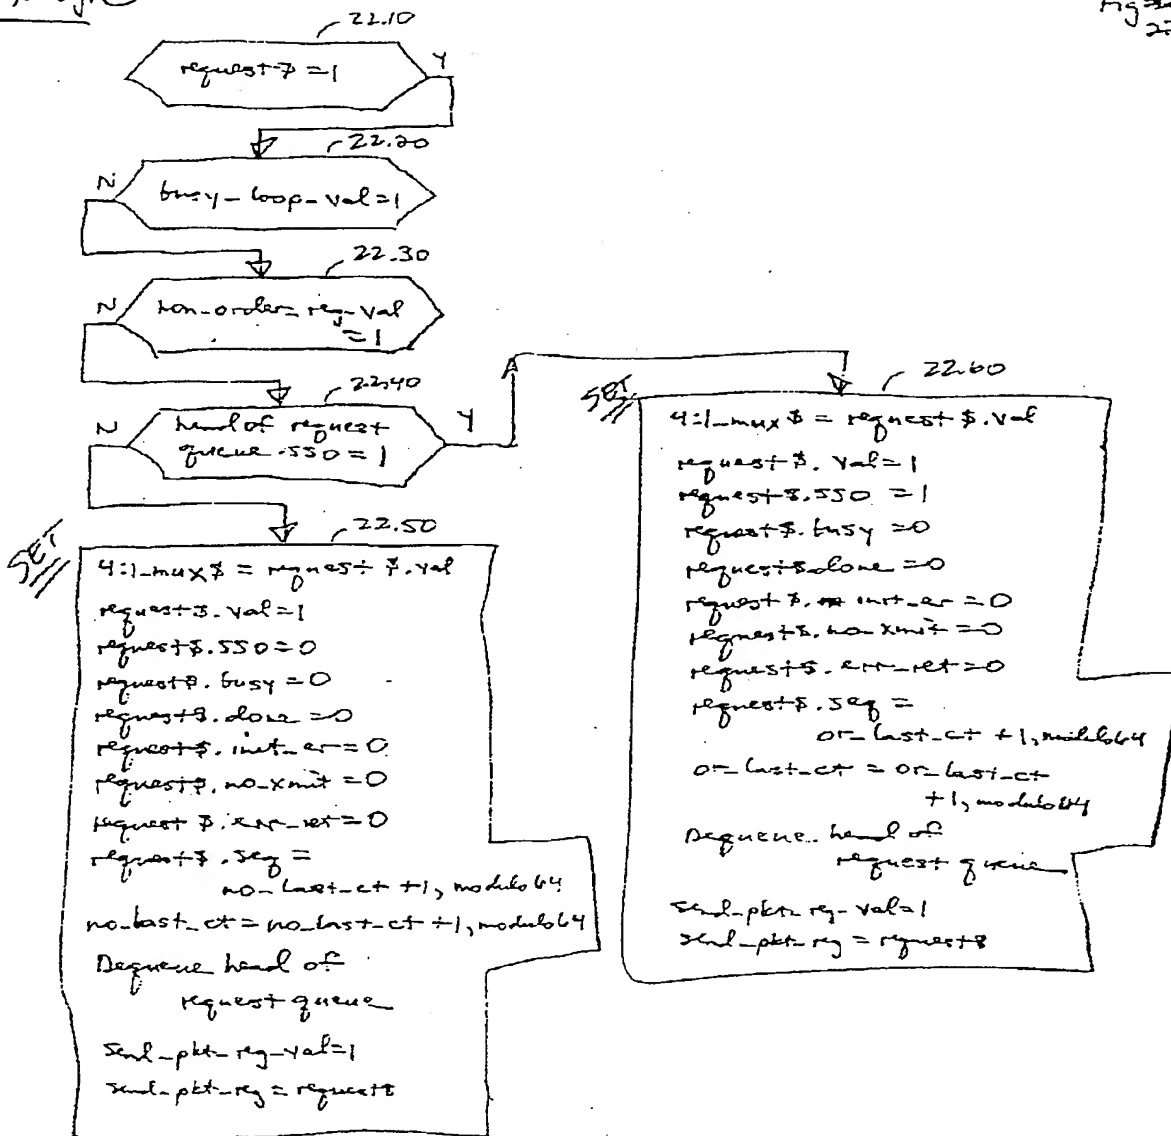 22.10
request $ = 1
Y
22.20
N
busy_loop_val=1
22.30
N
non_order_reg_val
= 1
22.40
N
head of request
queue.SSO = 1
Y
SET
22.50
4:1_mux $ = request $.val
request $.val=1
request $.SSO=0
request $.busy=0
request $.done=0
request $.init_er=0
request $.no_xmit=0
request $.err_ret=0
request $.seq =
no_last_ct +1, modulo 64
no_last_ct = no_last_ct +1, modulo 64
Dequeue head of
request queue
Send_pkt_reg_val=1
Send_pkt_reg = request $
SET
22.60
4:1_mux $ = request $.val
request $.val=1
request $.SSO =1
request $.busy =0
request $.done =0
request $. init_er =0
request $.no_xmit =0
request $.err_ret=0
request $.seq =
or_last_ct +1, modulo 64
or_last_ct = or_last_ct
+1, modulo 64
Dequeue head of
request queue
Send_pkt_reg_val=1
Send_pkt_reg = request $